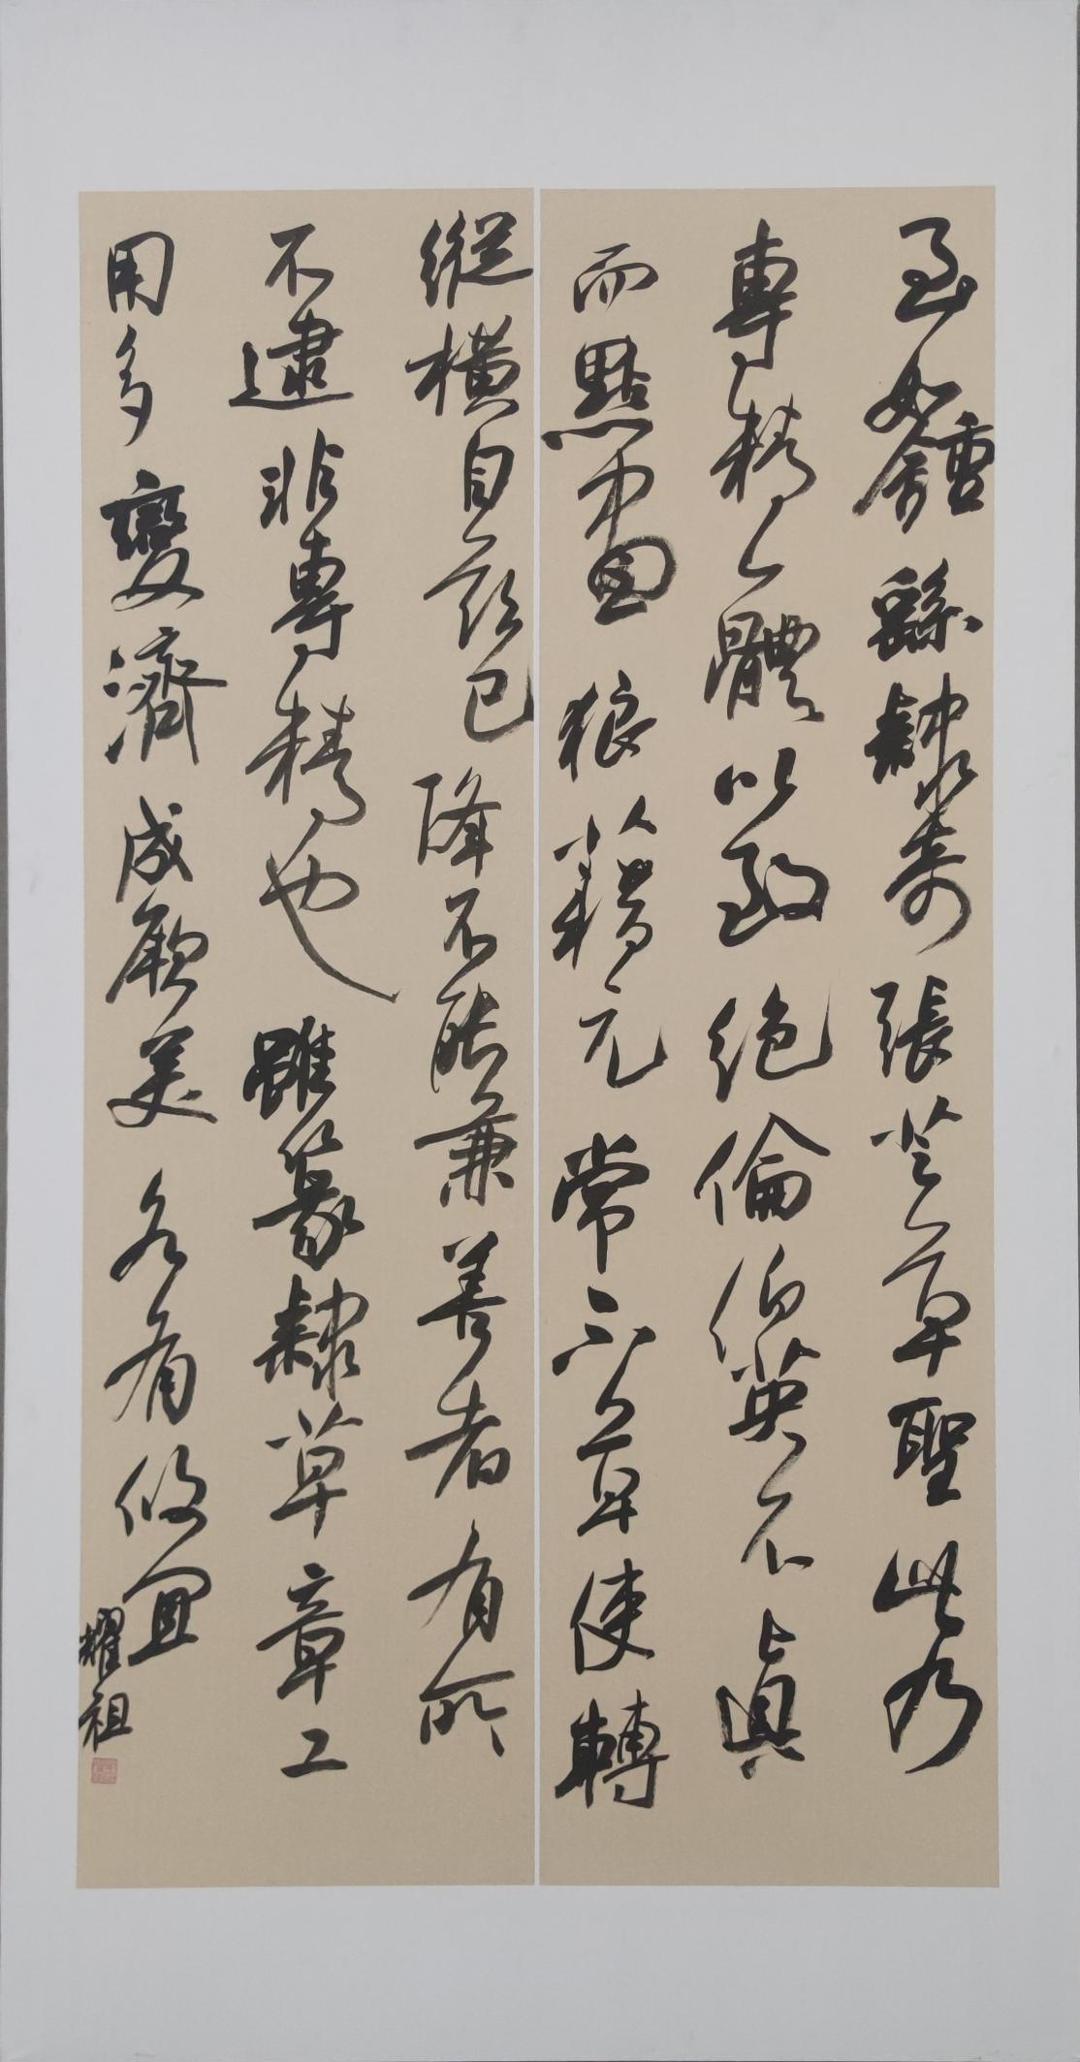 至如鍾繇隸奇張芝草聖此乃
專精一體以致絕倫伯英不真
而點畫狼藉元常不草使轉
縱橫自茲已降不能兼善者有所
不逮非專精也雖篆隸草章工
用多變濟成厥美各有攸宜
耀祖